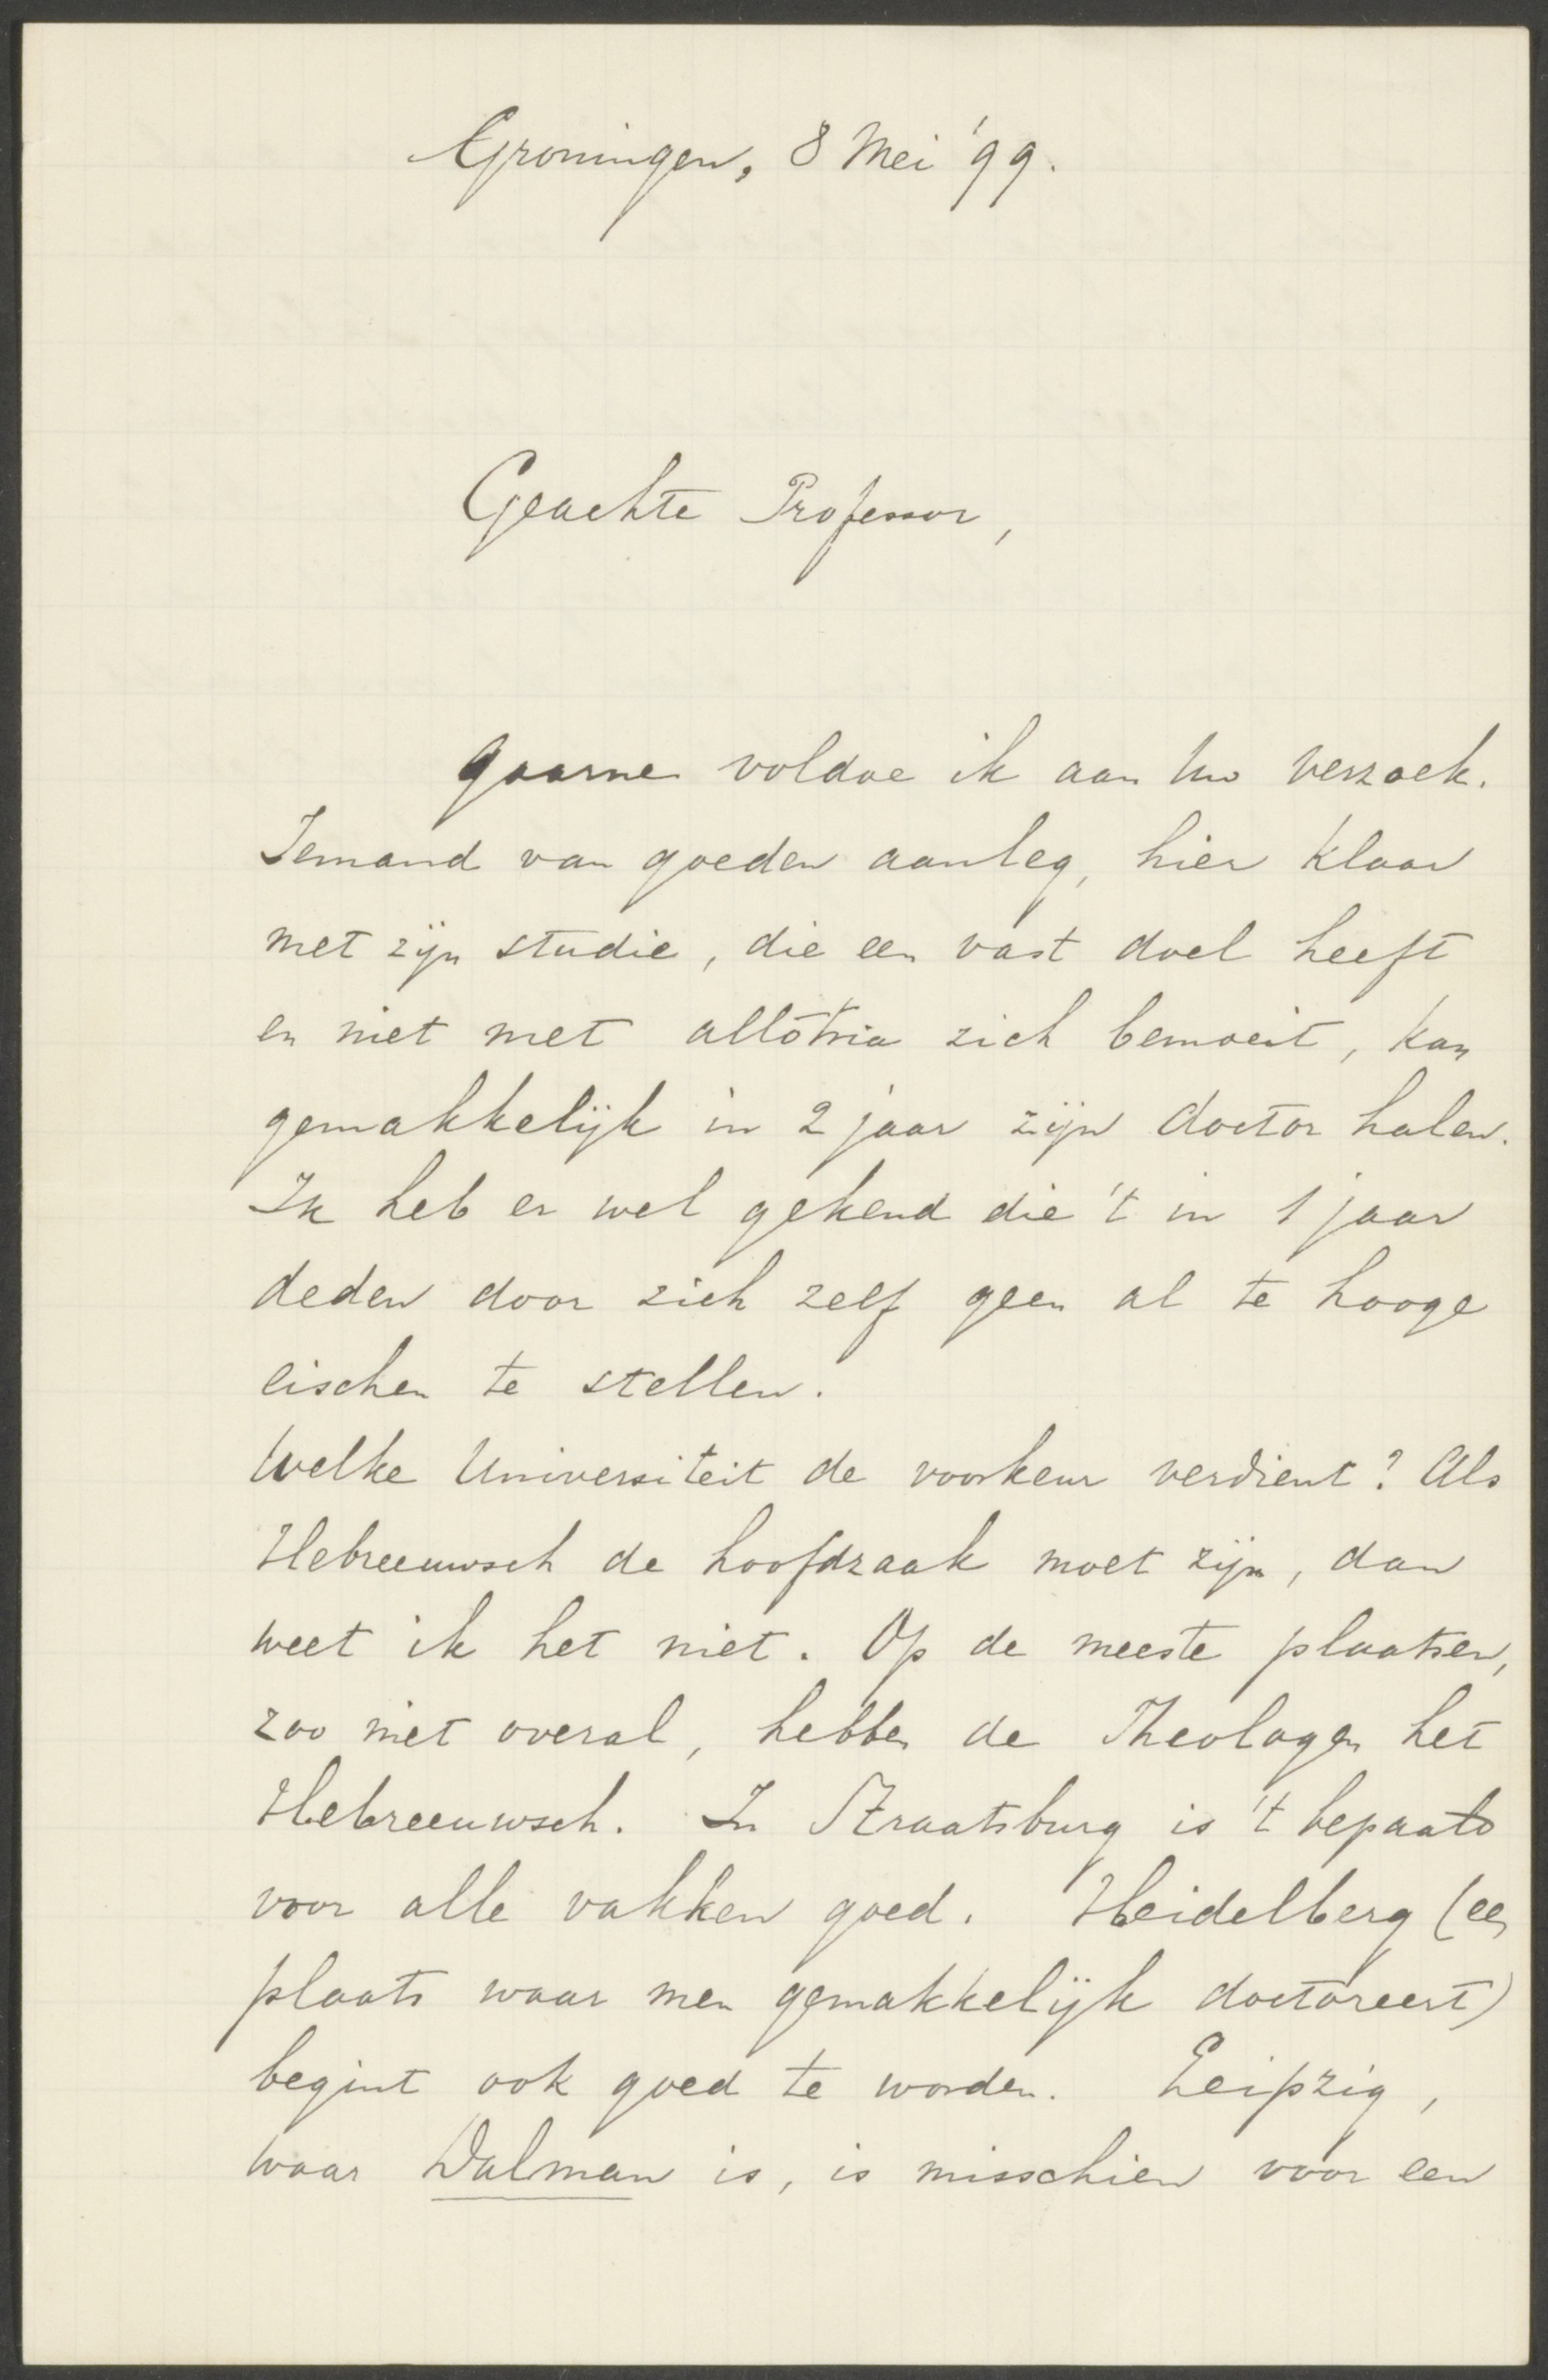 Groningen, 8 Mei '99.
Geachte Professor,
Gaarne voldoe ik aan Uw verzoek.
Iemand van goeden aanleg, hier klaar
met zijn studie, die een vast doel heeft
en niet met allotria zich bemoeit, kan
gemakkelijk in 2 jaar zijn doctor halen.
Ik heb er wel gekend die 't in 1 jaar
deden door zich zelf geen al te hooge
eischen te stellen.
Welke Universiteit de voorkeur verdient? Als
Hebreeuwsch de hoofdzaak moet zijn, dan
weet ik het niet. Op de meeste plaatsen,
zoo niet overal, hebben de Theologen het
Hebreeuwsch. In Straatsburg is 't bepaald
voor alle vakken goed. Heidelberg (een
plaats waar men gemakkelijk doctoreert)
begint ook goed te worden. Leipzig,
waar Dalman is, is misschien voor een